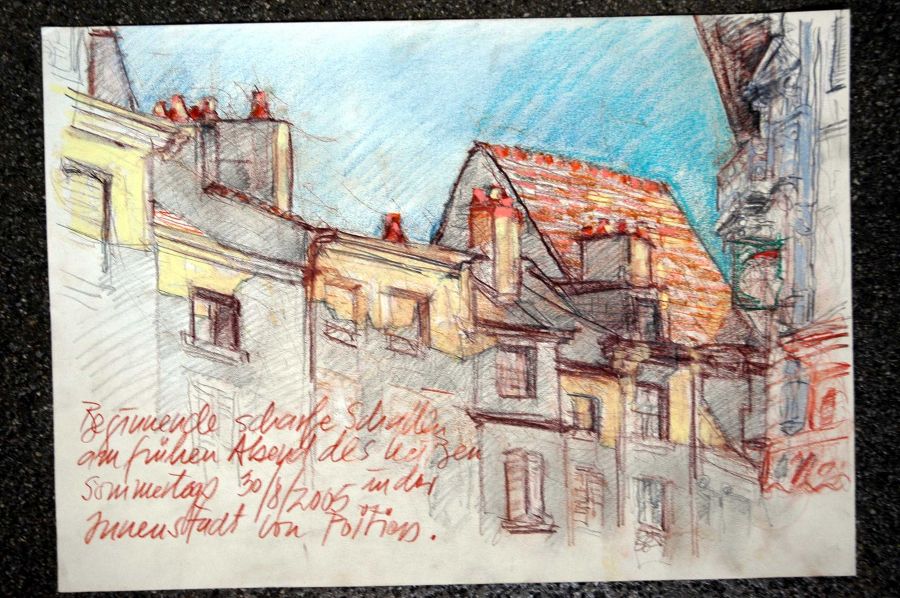 Beginnende scharfe Schatten
am frühen Abend des heißen
Sommertags 30/8/2005 in der
Innenstadt von Poitiers.